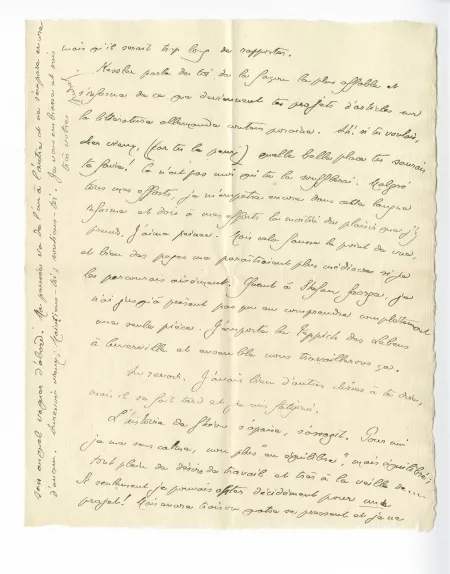 mais qu'il serait trop long de rapporter.
Kessler parla de toi de la façon la plus affable et
s'informa de ce que devenaient tes projets d'articles sur
la littérature allemande contemporaine. Ah! si tu voulais,
cher vieux, (car tu le peux) quelle belle place tu saurais
te faire! Ce n'est pas moi qui te la soufflerai. Malgré
tous mes efforts, je m'empêtre encore dans cette langue
informe et dois à mes efforts la moitié du plaisir que j'y
prends. J'aime peiner. Mais cela fausse le point de vue,
et bien des pages me paraîtraient plus médiocres si je
les parcourais aisément. Quant à Stefan George, je
n'ai jusqu'à présent pas pu en comprendre complètement
une seule pièce. J'emporte le Teppich des Lebens
à Cuverville et ensemble nous travaillerons ça.
Au revoir. J'aurais bien d'autres choses à te dire,
mais il se fait tard et je suis fatigué.
L'histoire de s'apaise, s'assagit. Pour moi
je me sens calme, non plus "en équilibre" mais équilibré;
tout plein de désirs de travail et très à la veille de...
Si seulement je pouvais opter décidément pour une
projet! Mais encore trois ou quatre se pressent et je ne
sais auquel vaquer d'abord. Ma pensée va de l'un à l'autre et ne s'empare encore
d'aucun. Au revoir vieux; Je vous embrasse et suis
très votre